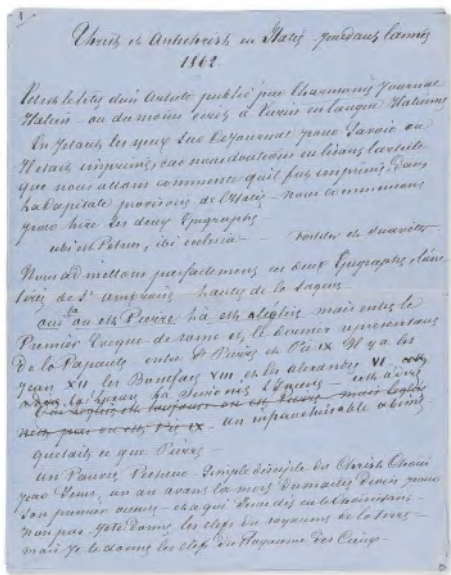 1
Christ et Antechrist en Italie pendant l'année
1862.
titre d'un Article publié par l'harmonie Journal
Italien - ou du moins écrit à Turin en langue Italienne
En jetant les yeux sur le Journal pour savoir ou
Il etait imprimé, car nous doutions en lisant l'article
que nous allons commenter qu'il fut imprimé, dans
la Capitale provisoire de l'Italie - nous commencons
pour lire les deux Epigraphes
ubi est Petrus, ibi eclesia - fortiter et suaviter
Nous admettons parfaitement les deux Epigraphes, l'une
tirée de St ambroise - l'autre de la Sagesse
oui la ou est Pierre la est l'église mais entre le
Premier Eveque de rome et, le dernier representant
de la Papauté - entre St Pierre et Pie IX Il y a les
Jean XII les Boniface VIII et les alexandre VI
un infranchissable abime
qu'etait ce que Pierre
un Pauvre Pecheur - Simple disciple du Christ Choisi
par Jesus, un an avant la mort du maitre Divin pour
Son premier - et a qui Jesus dit en le Choisissant
non pas je te donne les clefs du royaume de la terre
mais Je te donne les clefs du Royaume des Cieux -